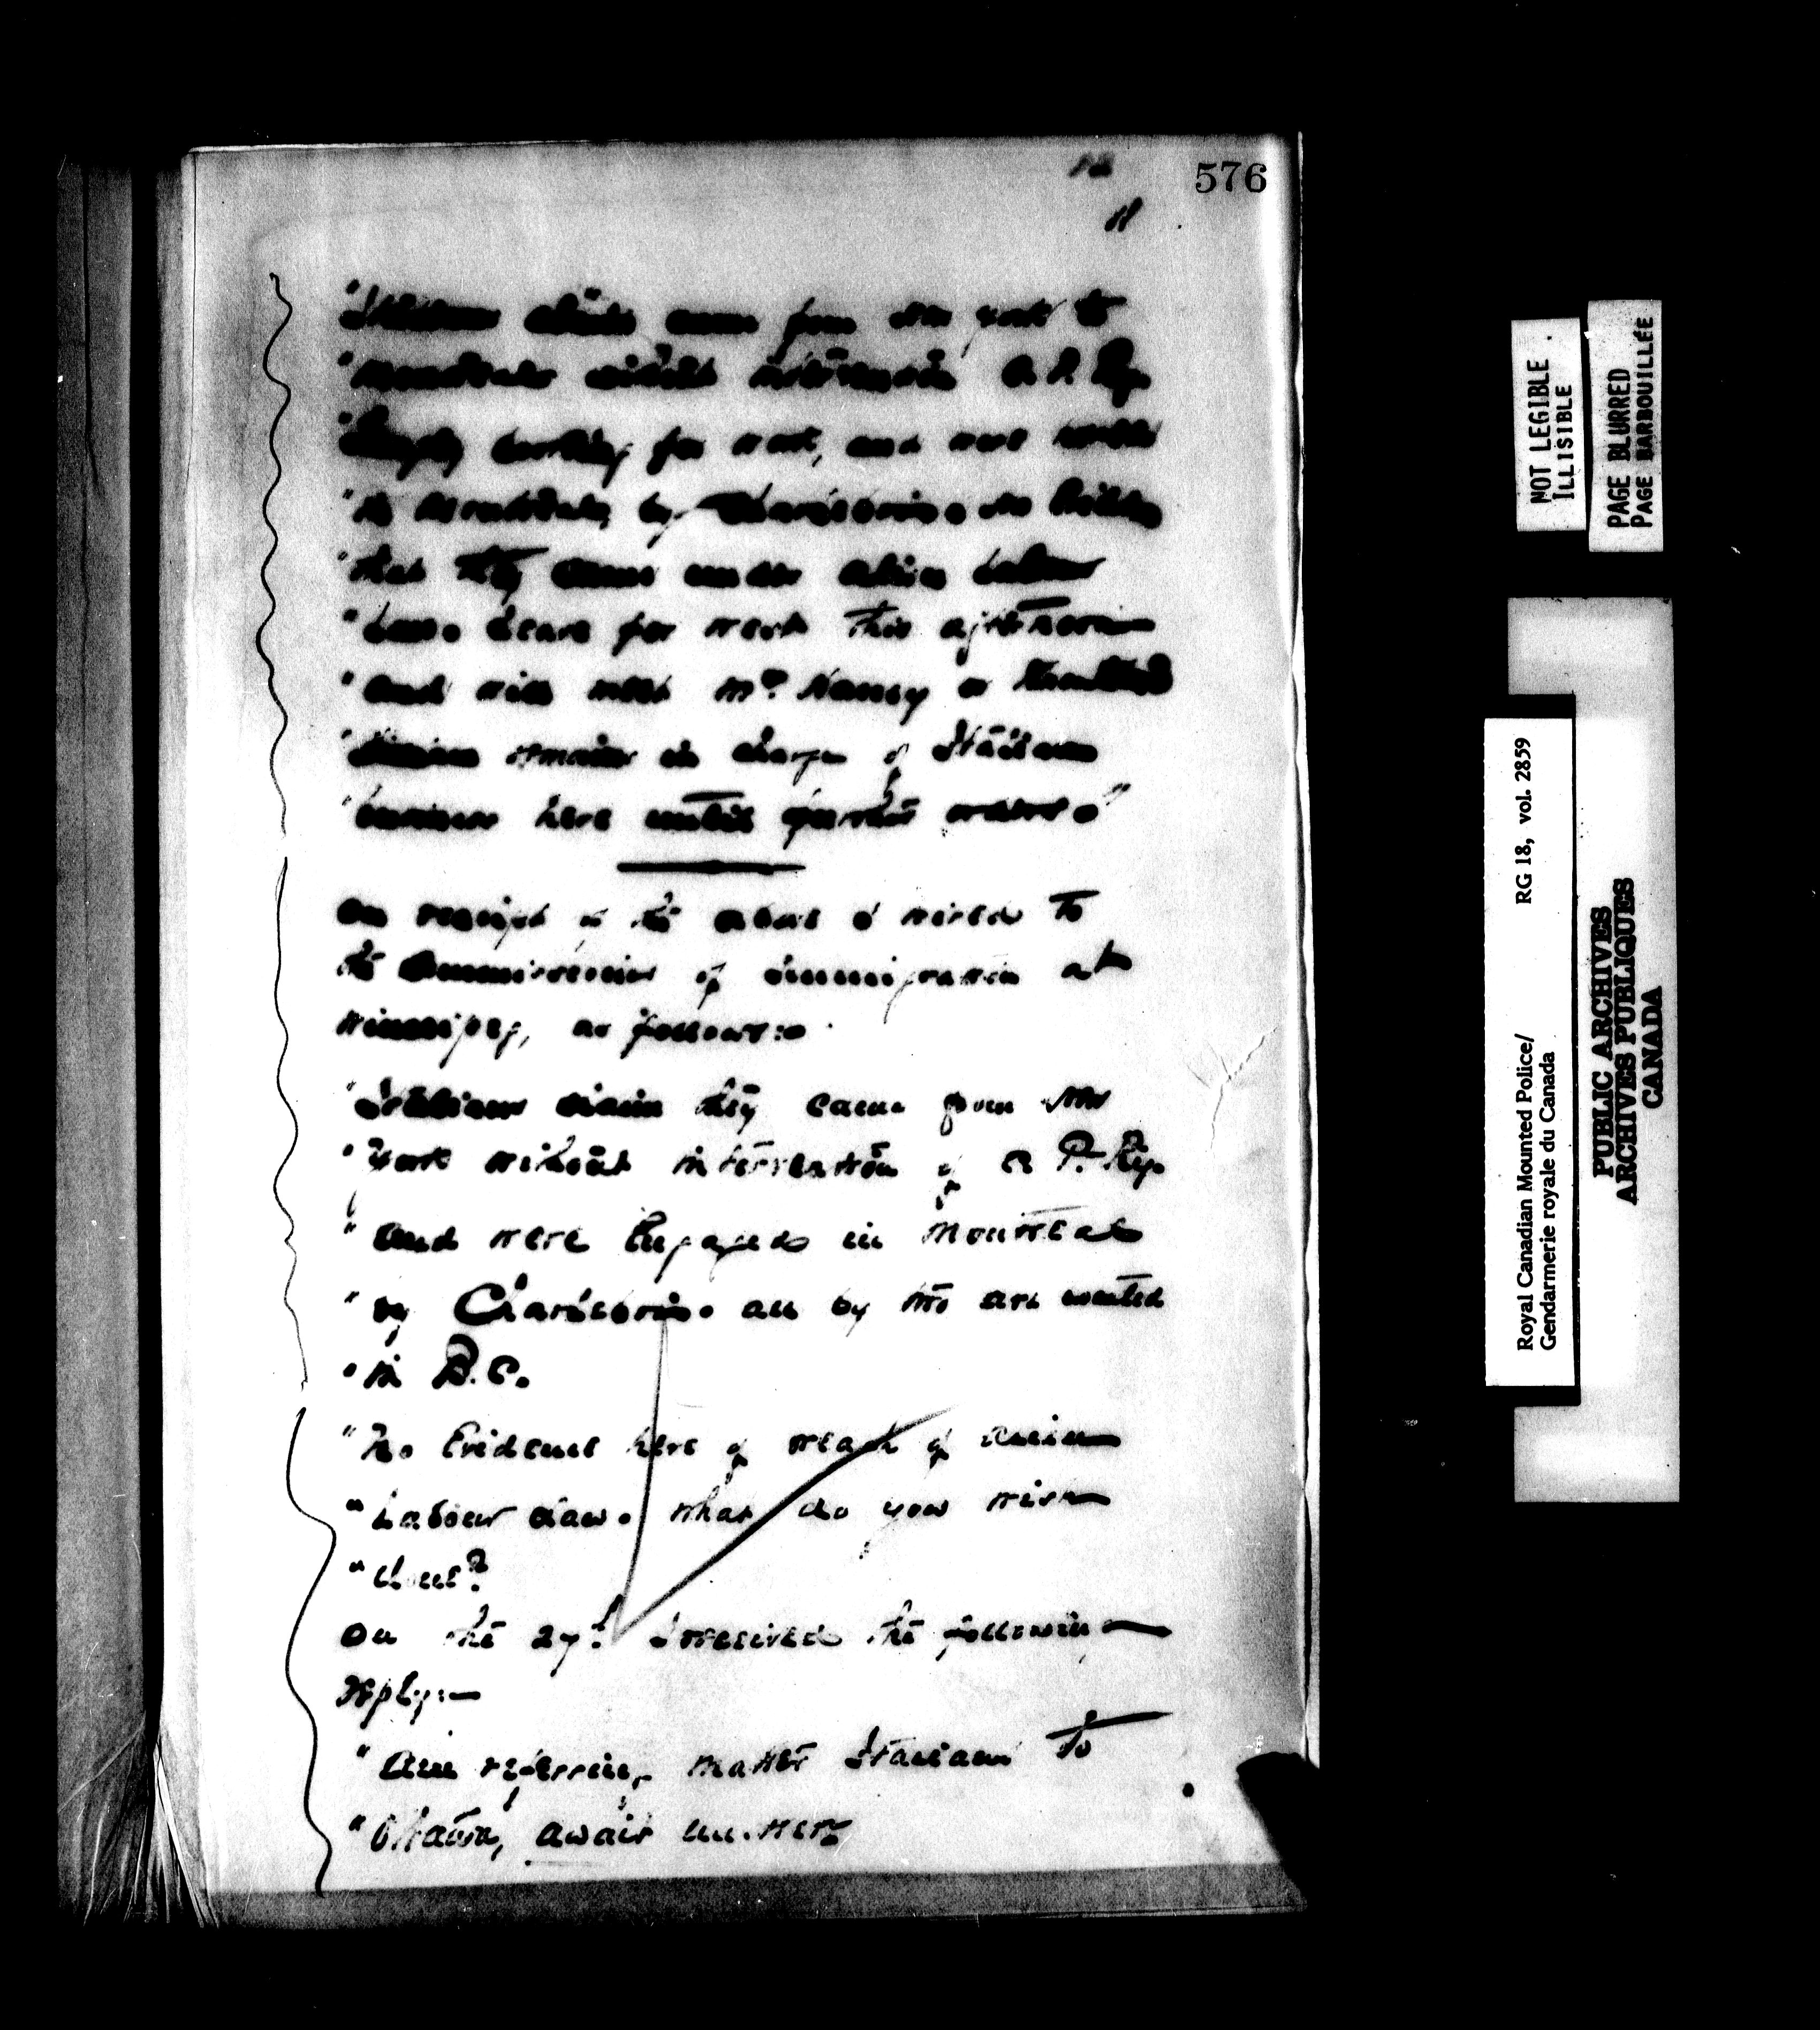 576
11
"Italians claim came from New York to
"Montreal without intervention C. P. Ry.
looking for work, and were
"in Montreal, by
"that they came under alien labour
"Law. Leave for west this afternoon
"and will meet Mr. Nancy
remains in charge of Italian
"business here until further orders."
On receipt of the above I wired to
the Commissioner of Immigration at
Winnipeg, as follows:-
"Italians claim they came from New
"York without intervention of C P. Ry.
"and were Engaged in Montreal
"by all by are wanted
"in B.C.
"No Evidence here of breach of alien
"Labour Law. What do you wish
"done?
On the 27th I received the following
reply:—
"Am referring matter Italians to
"Ottawa, await answer
NOT LEGIBLE
ILLISIBLE
PAGE BLURRED
PAGE BARBOUILLÉE
Royal Canadian Mounted Police/ RG 18, vol. 2859
Gendarmerie royale du Canada
PUBLIC ARCHIVES
ARCHIVES PUBLIQUES
CANADA